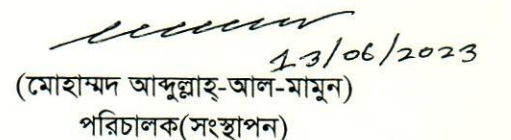 13/06/2023
(মোহাম্মদ আব্দুল্লাহ্-আল-মামুন)
পরিচালক(সংস্থাপন)